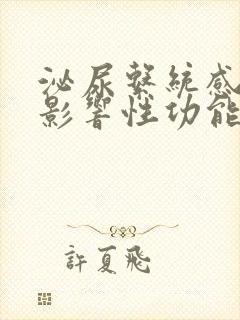 泌尿繫統感
影響性功能
許夏飛